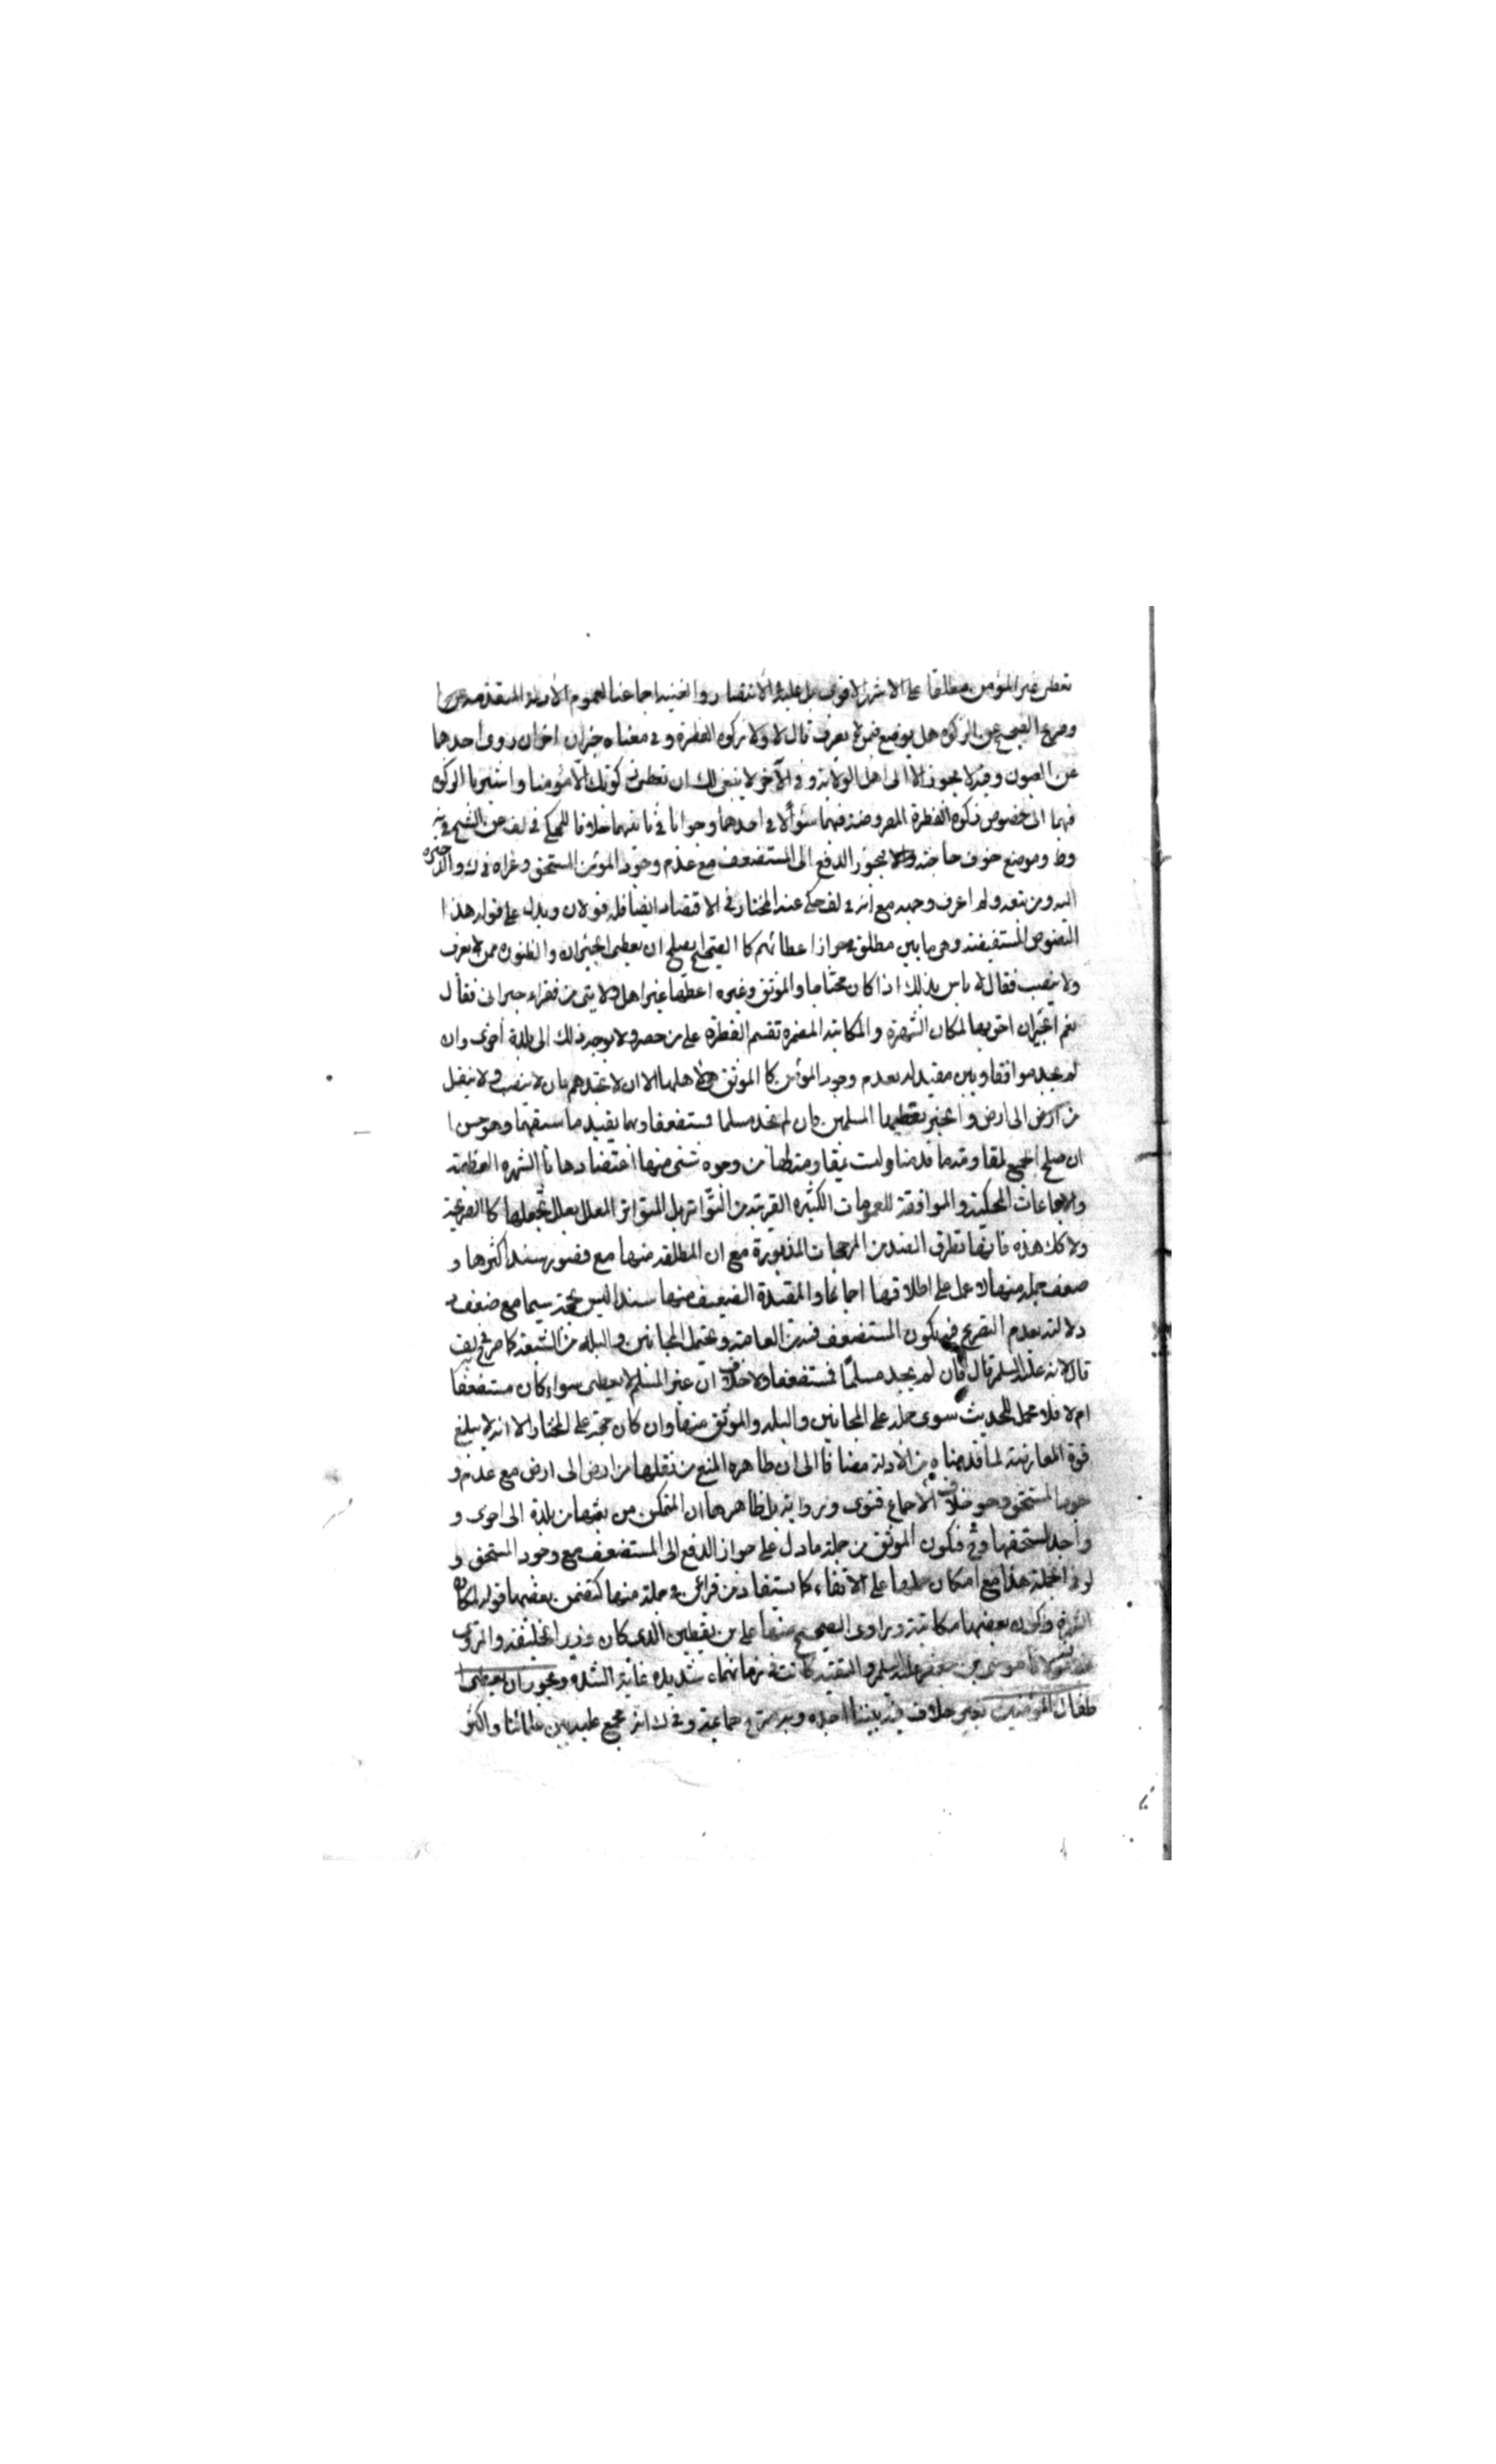 تعطى غير المؤمن مطلقا على الاشهر الاقوى بل عليه الانتصار والغنية اجماعنا لعموم الأدلة المتقدمة
وصريح الصحيح عن الزكوة هل يوضع فيمن لا يعرف قال لا ولا زكوة الفطرة وفى معناه خبران اخران روى احدهما
عن العيون وفيه لا يجوز الا الى اهل الولاية وفى الآخر لا ينبغى لك ان تعطى زكوتك الا مؤمنا واشير بالزكوة
فيهما الى خصوص زكوة الفطرة المفروضة فيهما سؤالا فى احدهما وجوابا فى ثانيهما خلافا للمحكى فى لف عن الشيخ فى يه
وط وموضع من ف حاجته والا فيجوز الدفع الى المستضعف مع عدم وجود المؤمن المستحق وعزاه فى ك وخيره
اليه ومن تبعه ولم اعرف وجهه مع انه فى لف حكى عنه المختار فى الاقتصاد ايضا فله قولان ويدل على قوله هذا
النصوص المستفيضة وهى ما بين مطلق جواز اعطائهم كالصحيح ايصلح ان يعطى الجيران والظئورة ممن لا يعرف
ولا ينصب فقال لا باس بذلك اذا كان محتاجا والموثق وغيره اعطيها غير اهل ولايتى من فقراء جيرانى فقال
نعم الجيران احق بها لمكان الشهرة والمكاتبة المضمرة تقسم الفطرة على من حضر ولا يوجه ذلك الى بلدة أخرى وان
لم يجد موافقا وبين مقيد له بعدم وجود المؤمن كالموثق هى لاهلها الا ان لا تجدهم فان لا ينصب ولا ينقل
من ارض الى ارض والخبر يعطيها المسلمين فان لم يجد مسلما فمستضعفا وبها يقيد ما سبقتها وهو حسن
ان صلح الجميع لمقاومة ما قدمنا وليست تبقاومتها من وجوه شتى منها اعتضادها بالشهرة العظيمة
والاجماعات المحكية والموافقة للعمومات الكثيرة القريبة من التواتر بل المتواتر المعلل بعلل تجعلها كالصريحة
ولا كك هذه فانها تطرق الضد من المرجحات المذبورة مع ان المطلقة منها مع قصور سند اكثرها و
ضعف جملة منها لا عمل على اطلاقها اجماعا والمقيدة الضعيف منها سندا ليس بحجة سيما مع ضعف
دلالته بعدم التصريح فيه بكون المستضعف فيه من العامة ويحتمل المجانين والبله من الشيعة كما صرح فى لف
قال لانه عليه السلم قال فان لم يجد مسلما فمستضعفا ولا خلاف ان غير المسلم لا يعطى سواء كان مستضعفا
ام لا فلا محمل للحديث سوى حمله على المجانين والبله والموثق منها وان كان حجة على المختار الا انه لا يبلغ
قوة المعارضة لما قدمناه من الادلة مضافا الى ان ظاهره المنع من نقلها من ارض الى ارض مع عدم و
جود المستحق وهو خلاف الاجماع فتوى ورواية بل ظاهرهما ان المتمكن من بعثها من بلدة الى اخرى و
واجد لمستحقها وح فيكون الموثق من جملة ما دل على جواز الدفع الى المستضعف مع وجود المستحق و
لو فى الجملة هذا مع امكان حملها على الاتقاء كما يستفاد من قرائن فى جملة منها كتضمن بعضها قوله لمكان
الشهرة وكون بعضها مكاتبة وراوى الصحيح منها على بن يقطين الذى كان وزير الخليفة والمروى
عنه مولانا موسى بن جعفر عليه السلم والتقية كانت فى زمانهما شديدة غاية الشدة ويجوز ان يعطى
طفال المؤمنين بغير خلاف فيه بيننا اجده وبه صرح جماعة وفى ك انه مجمع عليه بين علمائنا واكثر